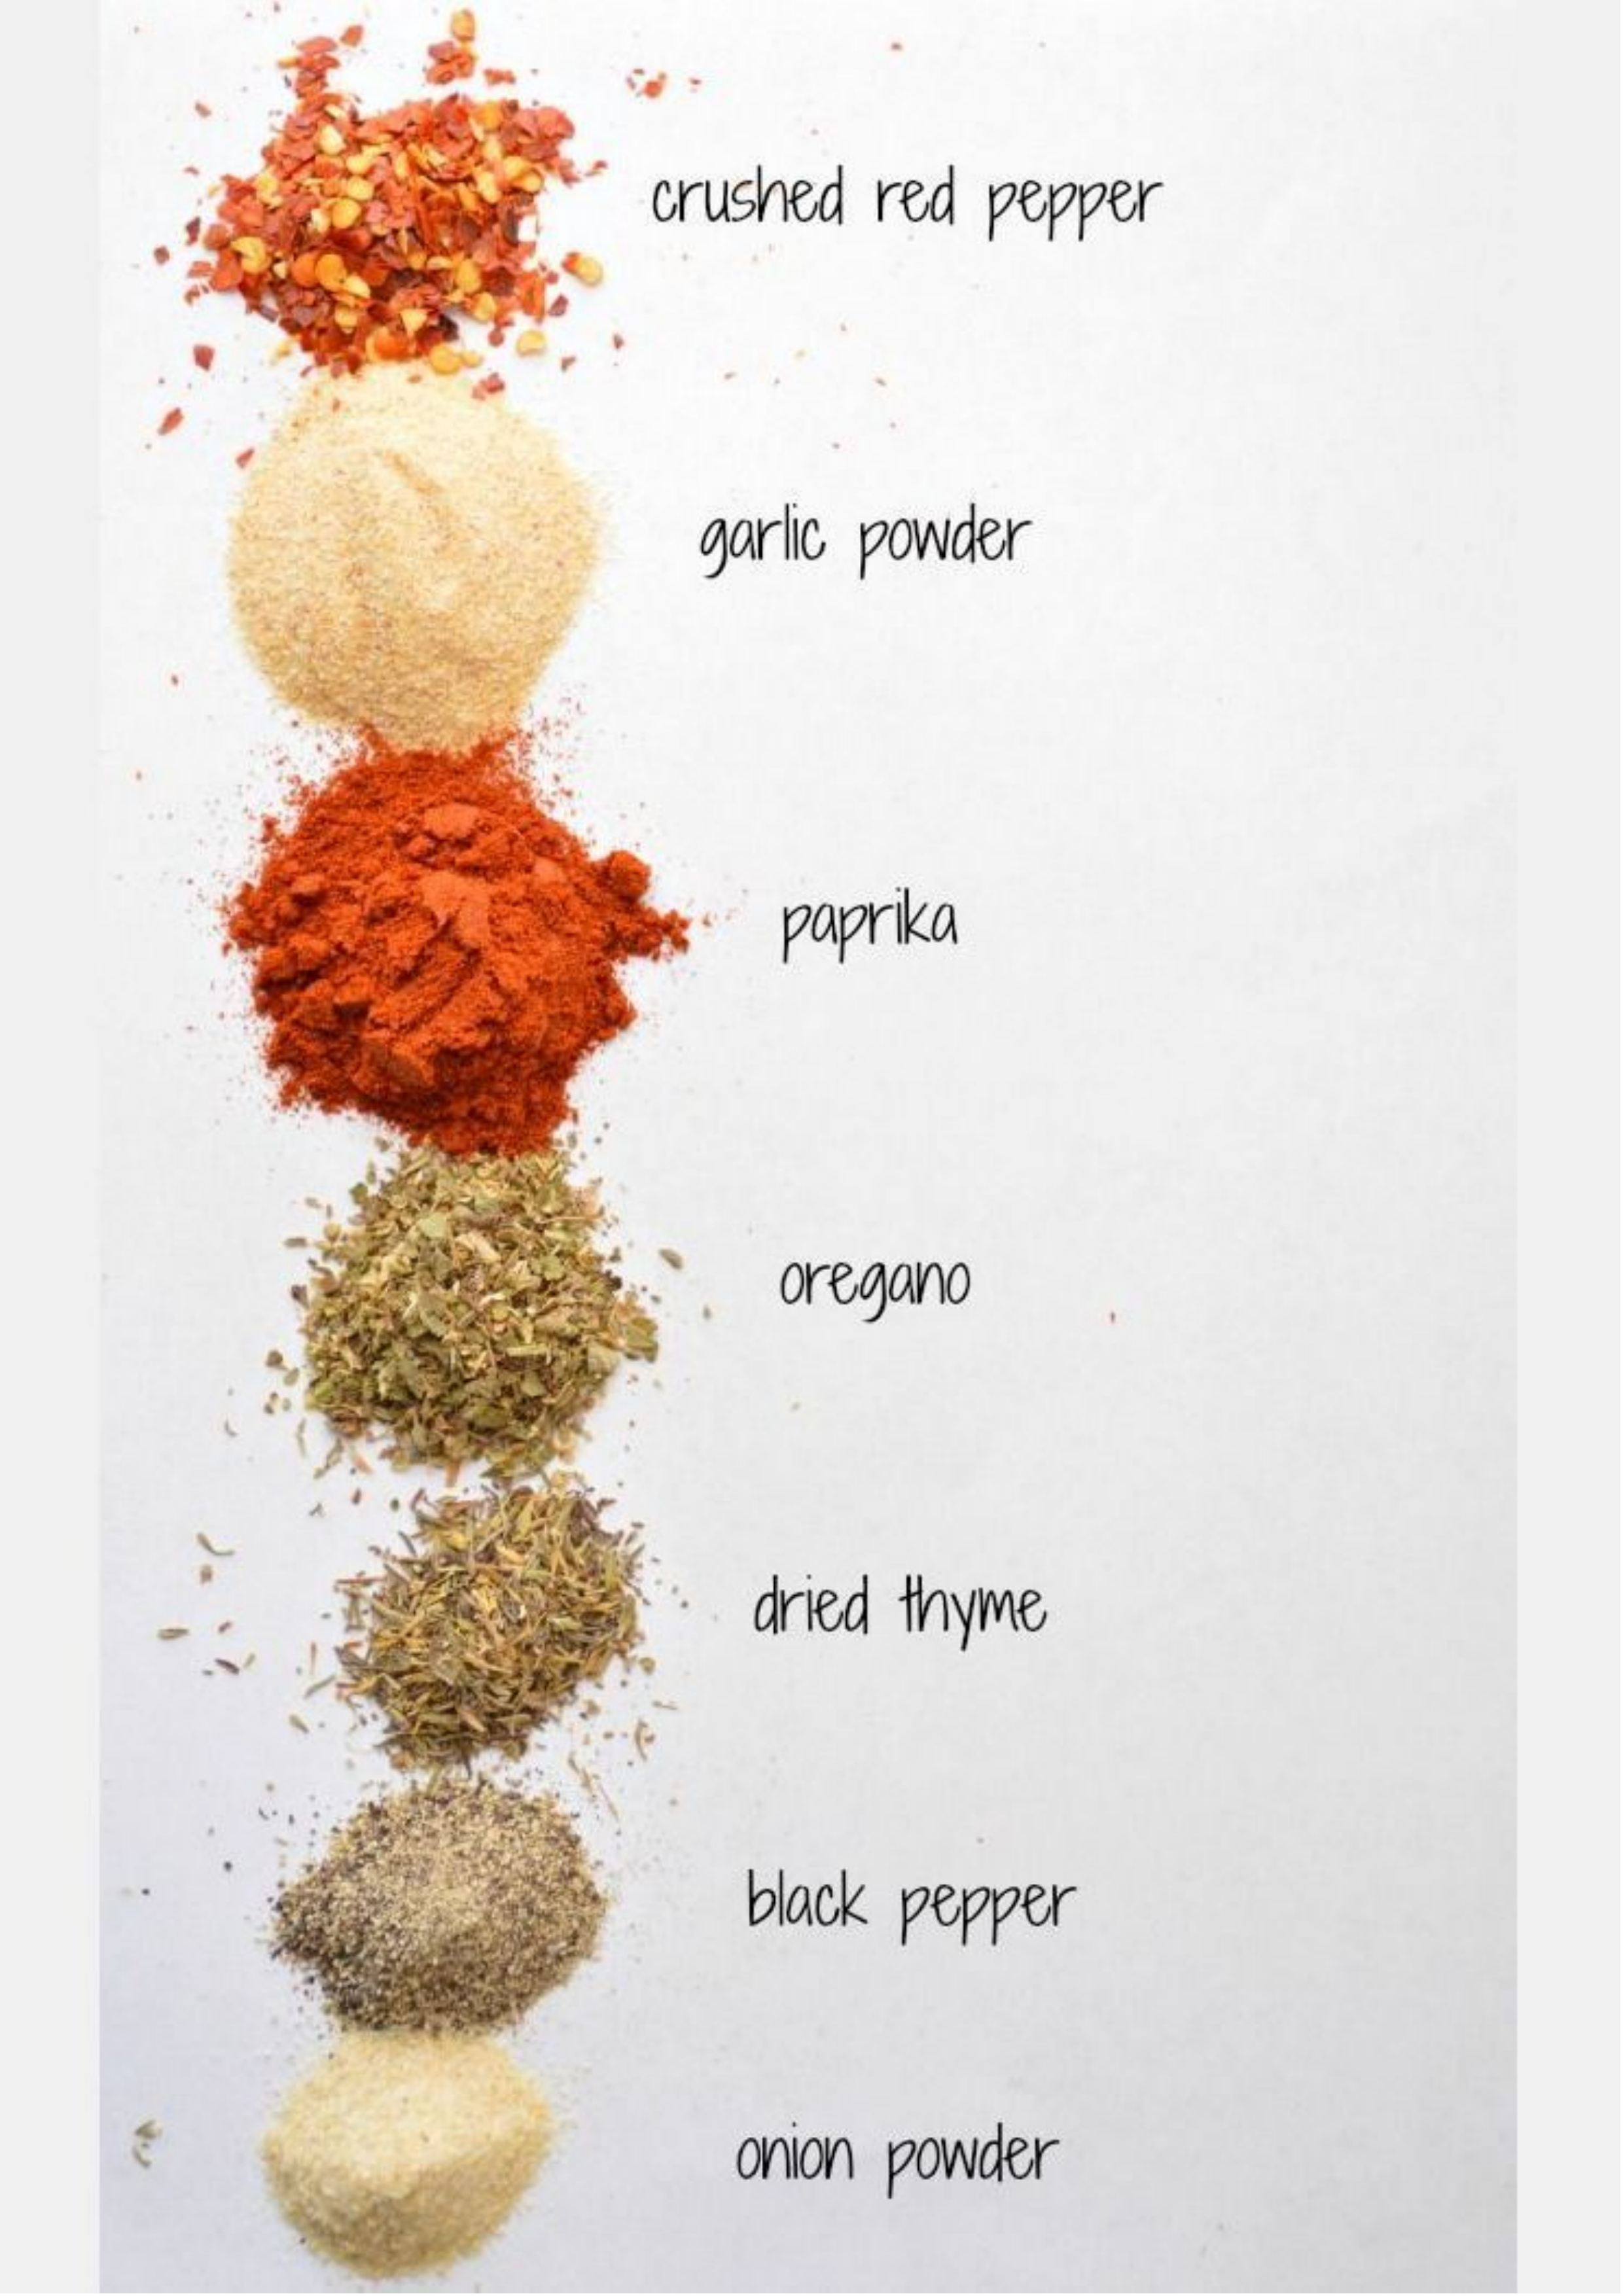 crushed red pepper
garlic powder
paprika
oregano
dried thyme
black pepper
onion powder